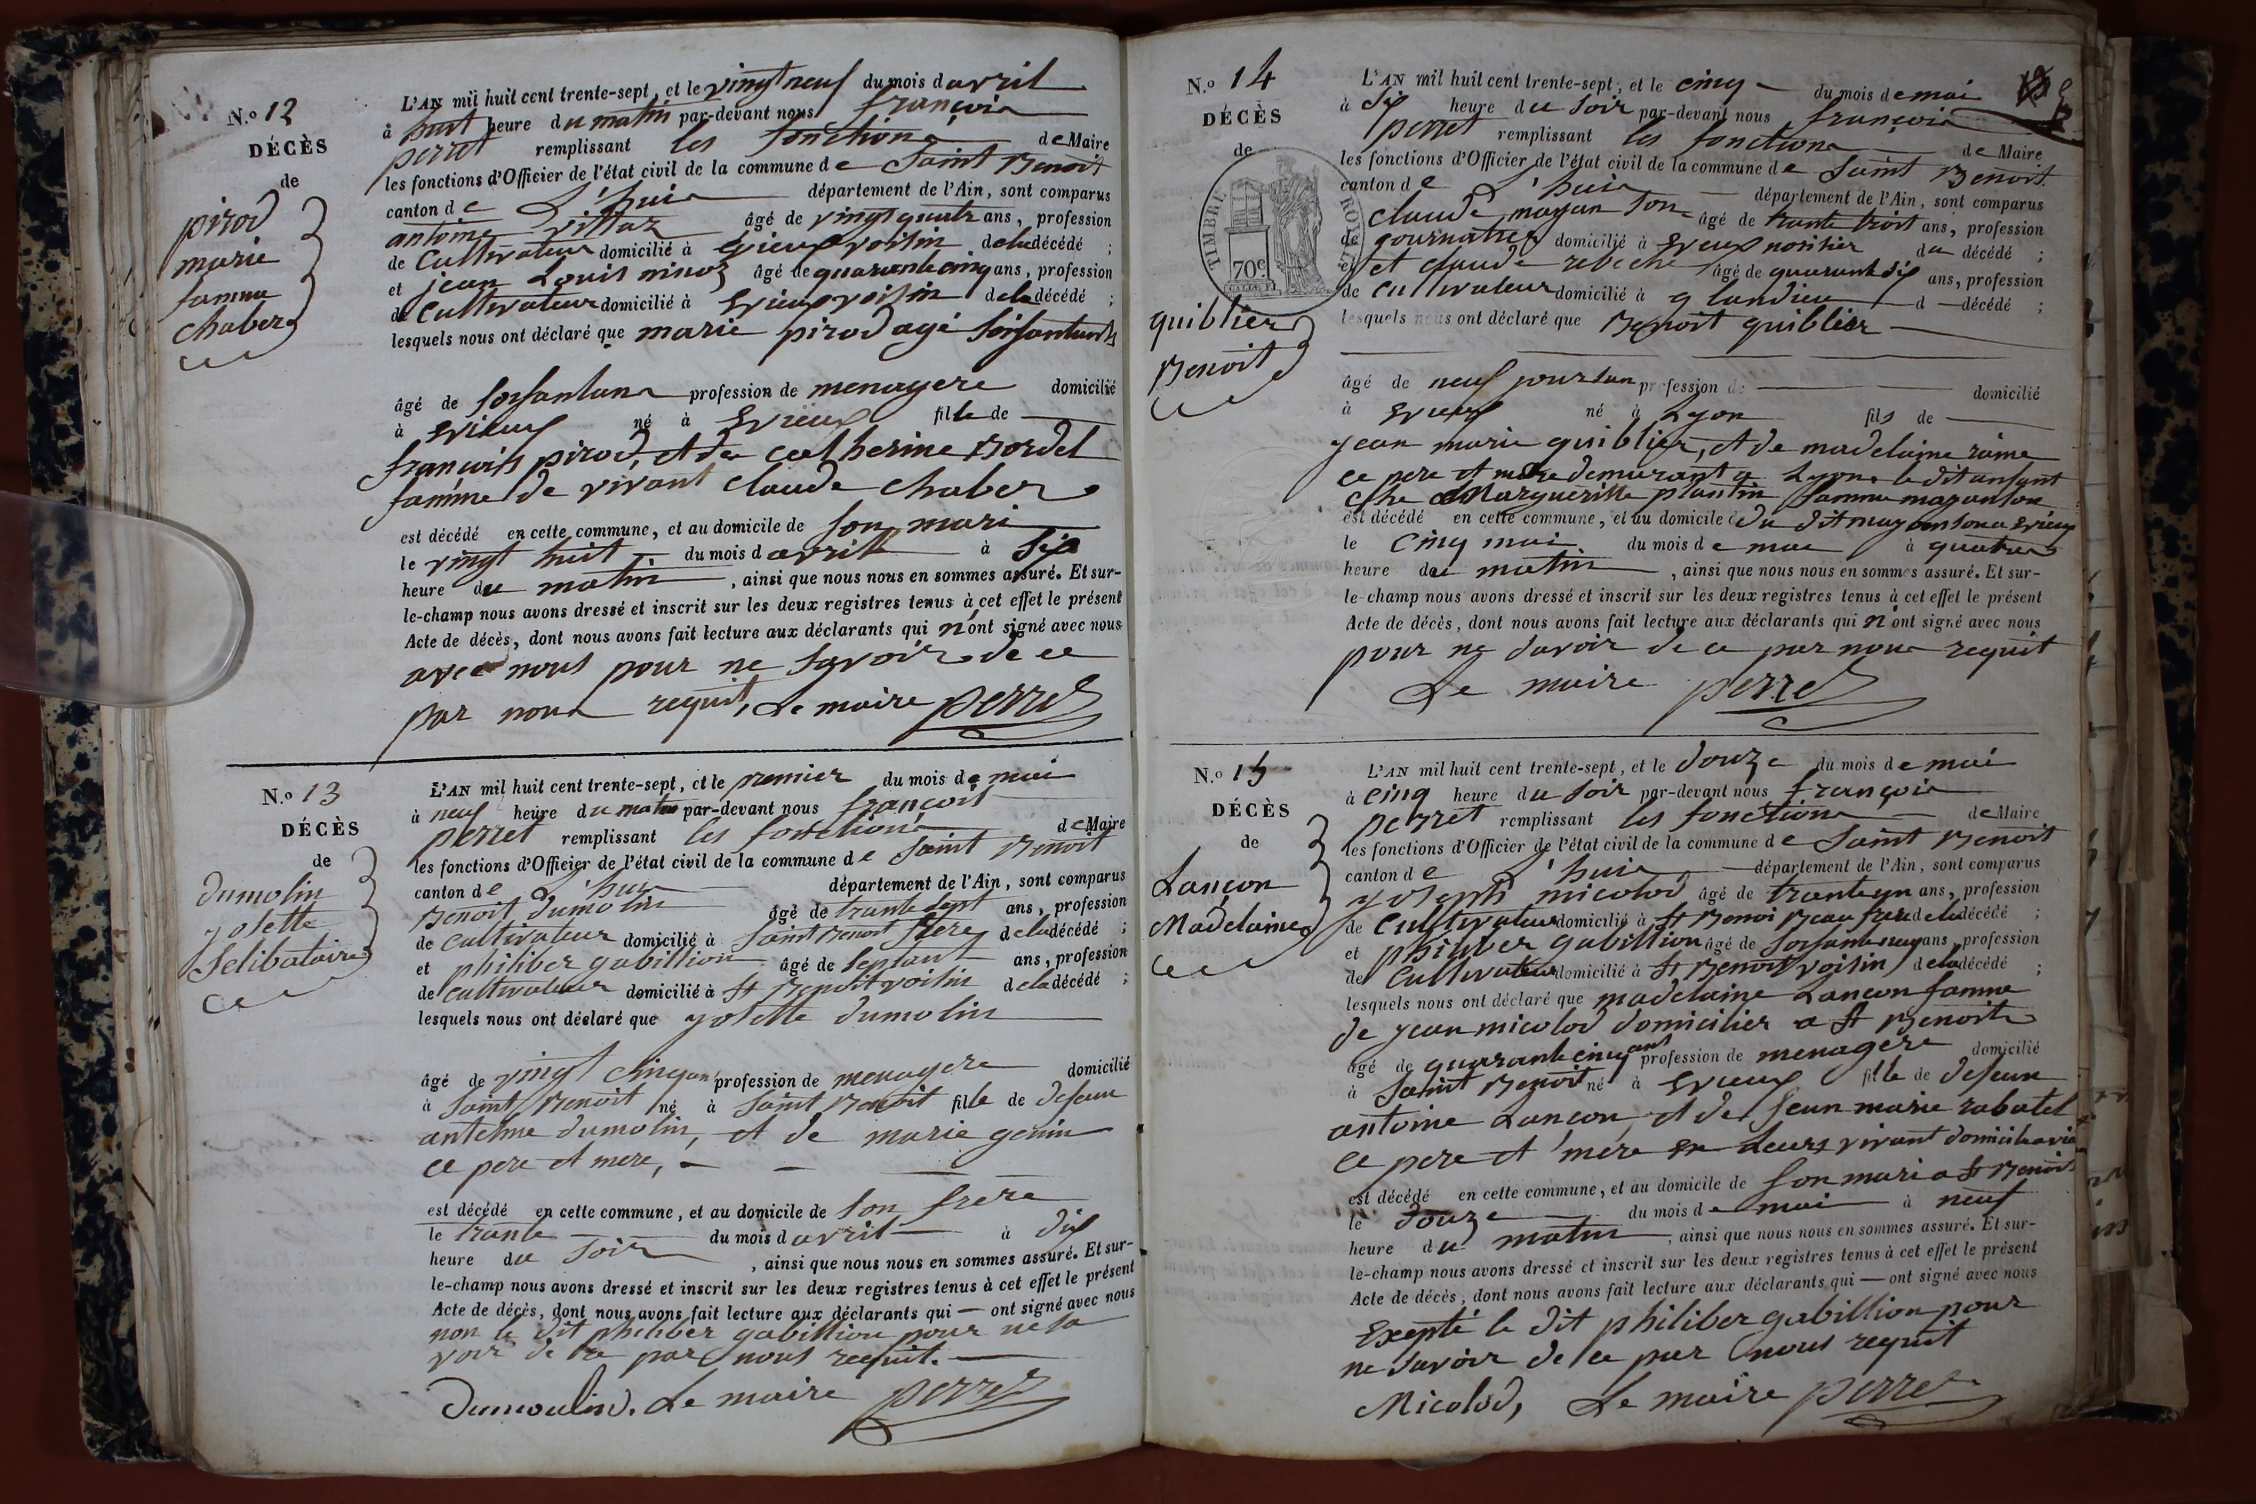 N.o 12
DÉCÈS
de
pirod
marie
famme
chaber
L'AN mil huit cent trente-sept, et le vingt neuf du mois d avril
à huit heure du matin par-devant nous françois
perret remplissant les fonctions de Maire
les fonctions d'Officier de l'état civil de la commune de Saint Benoit
canton de L'huis département de l'Ain, sont comparus
antoine vittoz âgé de vingt quatre ans, profession
de Cultivateur domicilié à Evieux voisin de la décédé ;
et jean Louis âgé de quarante cinq ans, profession
de Cultivateur domicilié à Evieux voisin de la décédé ;
lesquels nous ont déclaré que marie pirod agé
âgé de profession de menagere domicilié
à Evieux né à Evieux fille de
françois pirod, et de catherine Bordel
famme de vivant claude chaber
est décédé en cette commune, et au domicile de son mari
le vingt huit du mois d avril à six
heure du matin, ainsi que nous nous en sommes assuré. Et sur-
le-champ nous avons dressé et inscrit sur les deux registres tenus à cet effet le présent
Acte de décès, dont nous avons fait lecture aux déclarants qui n'ont signé avec nous
avec nous pour ne savoir de ce
par nous requit, Le maire perret
N.o 13
DÉCÈS
de
dumolin
yosette
Selibataire
L'AN mil huit cent trente-sept, et le premier du mois de mai
à neuf heure du matin par-devant nous françois
perret remplissant les fonctions de Maire
les fonctions d'Officier de l'état civil de la commune de Saint Benoit
canton de L'huis département de l'Ain, sont comparus
Benoit dumolin âgé de trante sept ans, profession
de Cultivateur domicilié à Saint Benoit frere de la décédé ;
et philiber gabillion âgé de septante ans, profession
de Cultivateur domicilié à St Benoit voisin de la décédé ;
lesquels nous ont déclaré que yosette dumolin
âgé de vingt cinq an profession de menagere domicilié
à Saint Benoit né à Saint Benoit fille de defeun
antelme dumolin, et de marie genin
ce pere et mere,
est décédé en cette commune, et au domicile de son frere
le trante du mois d avril à dix
heure du soir, ainsi que nous nous en sommes assuré. Et sur-
le-champ nous avons dressé et inscrit sur les deux registres tenus à cet effet le présent
Acte de décès, dont nous avons fait lecture aux déclarants qui — ont signé avec nous
non le dit philiber gabillion pour ne sa
voir de ce par nous requit.
Dumoulin. Le maire perret
N.o 14
DÉCÈS
de
TIMBRE ROYAL
70c
quiblier
Benoit
L'AN mil huit cent trente-sept, et le cinq du mois de mai
à six heure du soir par-devant nous françois
perret remplissant les fonctions de Maire
les fonctions d'Officier de l'état civil de la commune de Saint Benoit
canton de L'huis département de l'Ain, sont comparus
claude mayanson âgé de trante trois ans, profession
de journalier domicilié à Evieux du décédé ;
et et claude rebeche âgé de quarante six ans, profession
de cultivateur domicilié à glandieu d — décédé ;
lesquels nous ont déclaré que Benoit quiblier
âgé de neuf jour profession de domicilié
à Evieux né à Lyon fils de
jean marie quiblier, et de madelaine
ce pere et mere demurant a Lyon le dit anfant
Marguerite plantin famme
est décédé en cette commune, et au domicile du dit a Evieux
le cinq mai du mois de mai à quatre
heure du matin, ainsi que nous nous en sommes assuré. Et sur-
le-champ nous avons dressé et inscrit sur les deux registres tenus à cet effet le présent
Acte de décès, dont nous avons fait lecture aux déclarants qui n'ont signé avec nous
pour ne savoir de ce par nous requit
Le maire perret
N.o 15
DÉCÈS
de
Lançon
Madelaine
L'AN mil huit cent trente-sept, et le douze du mois de mai
à cinq heure du soir par-devant nous françois
perret remplissant les fonctions de Maire
les fonctions d'Officier de l'état civil de la commune de Saint Benoit
canton de L'huis département de l'Ain, sont comparus
yoseph micolod âgé de trante un ans, profession
de Cultivateur domicilié à St Benoi Beau frere de la décédé ;
et philiber gabillion âgé de ans, profession
de Cultivateur domicilié à St Benoit voisin de la décédé ;
lesquels nous ont déclaré que madelaine Lancon famme
de jean micolod domicilier a St Benoit
âgé de quarante cinq ans profession de menagere domicilié
à Saint Benoit né à Evieux fille de defeun
antoine Lancon, et de jean marie rabatel
ce pere et mere en leurs vivant
est décédé en cette commune, et au domicile de son mari a St Benoit
le douze du mois de mai à neuf
heure du matin, ainsi que nous nous en sommes assuré. Et sur-
le-champ nous avons dressé et inscrit sur les deux registres tenus à cet effet le présent
Acte de décès, dont nous avons fait lecture aux déclarants qui — ont signé avec nous
Exepté le dit philiber gabillion pour
ne savoir de ce par nous requit
Micolod, Le maire perret